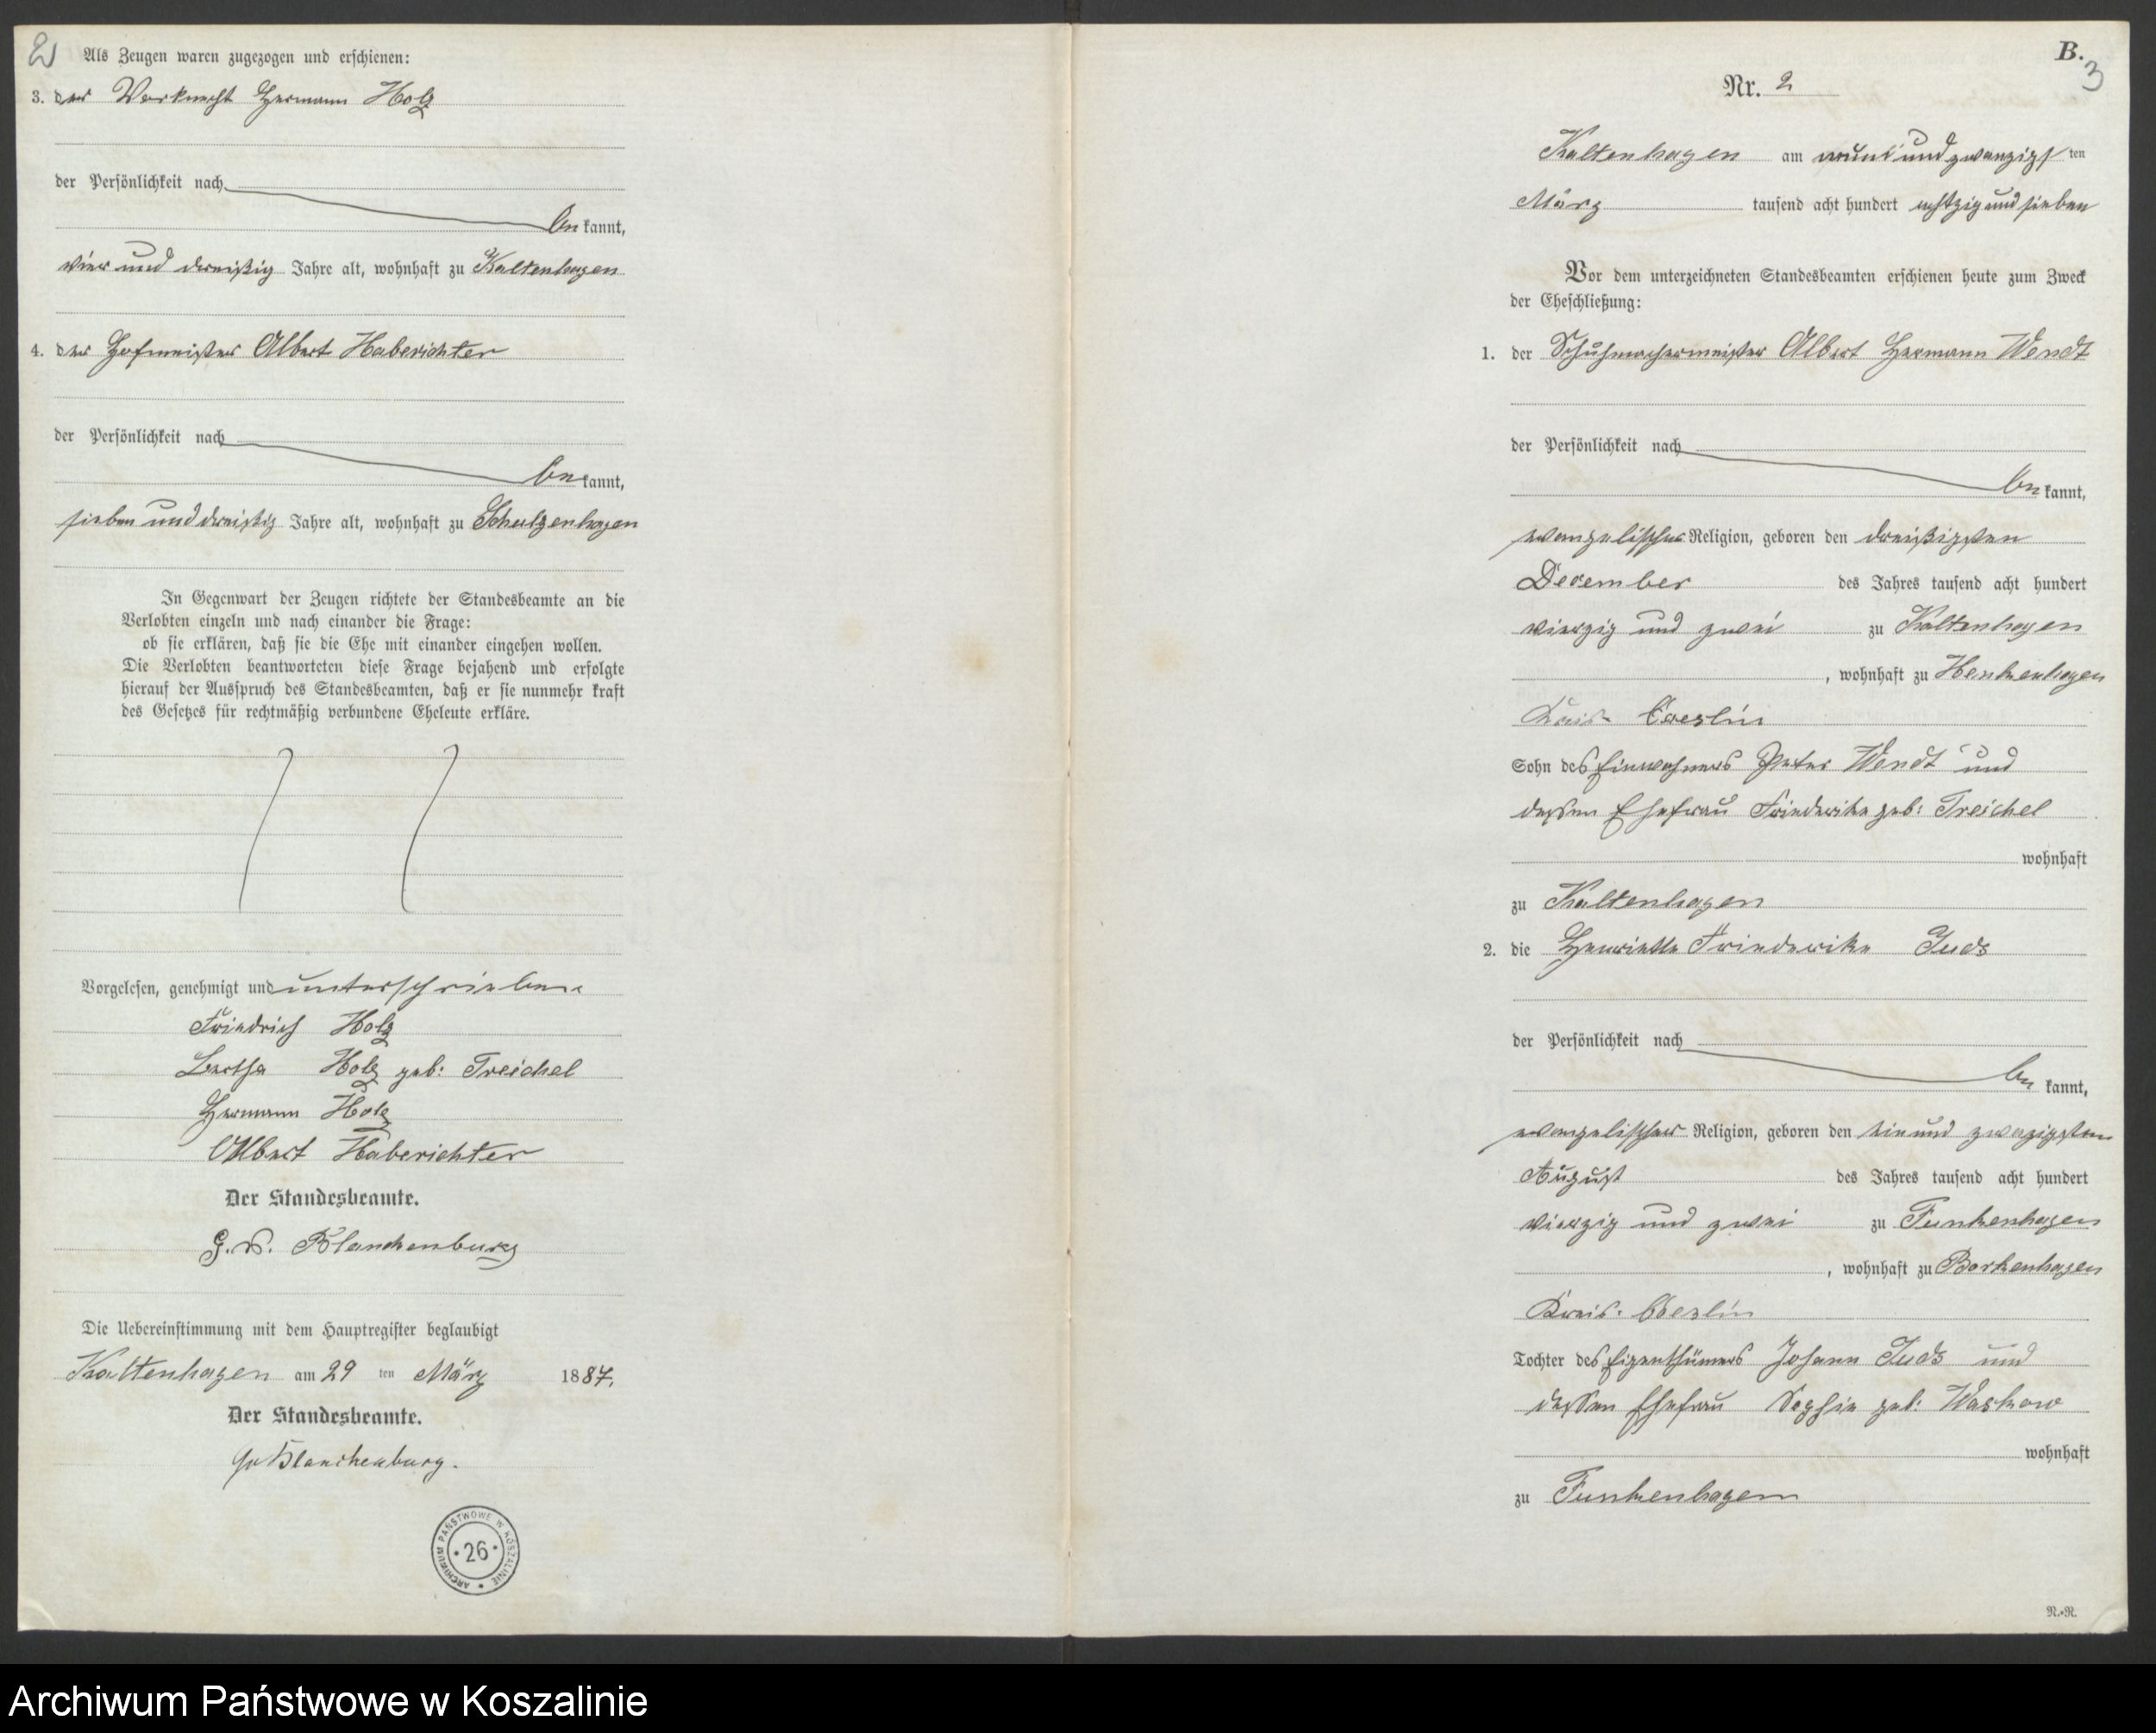 2
Als Zeugen waren zugezogen und erschienen:
3. der Vorknecht Hermann Holz
der Persönlichkeit nach
be kannt,
vier und dreißig Jahre alt, wohnhaft zu Kaltenhagen
4. der Hofmeister Albert Haberichter
der Persönlichkeit nach
be kannt,
sieben und dreißig Jahre alt, wohnhaft zu Schulzenhagen
In Gegenwart der Zeugen richtete der Standesbeamte an die
Verlobten einzeln und nach einander die Frage:
ob sie erklären, daß sie die Ehe mit einander eingehen wollen.
Die Verlobten beantworteten diese Frage bejahend und erfolgte
hierauf der Ausspruch des Standesbeamten, daß er sie nunmehr kraft
des Gesetzes für rechtmäßig verbundene Eheleute erkläre.
Vorgelesen, genehmigt und unterschrieben
Friedrich Holz
Bertha Holz geb: Treichel
Hermann Holz
Albert Haberichter
Der Standesbeamte.
G. v. Blanckenburg
Die Uebereinstimmung mit dem Hauptregister beglaubigt
Kaltenhagen am 29 ten März 1887.
Der Standesbeamte.
Gv Blanckenburg.
ARCHIWUM PAŃSTWOWE W KOSZALINIE
26
B.
3
Nr. 2
Kaltenhagen am neun und zwanzigs ten
März tausend acht hundert achtzig und sieben
Vor dem unterzeichneten Standesbeamten erschienen heute zum Zweck
der Eheschließung:
1. der Schuhmachermeister Albert Hermann Wendt
der Persönlichkeit nach
be kannt,
evangelischer Religion, geboren den dreißigsten
December des Jahres tausend acht hundert
vierzig und zwei zu Kaltenhagen
, wohnhaft zu Henkenhagen
Kreis Coeslin
Sohn des Einwohners Peter Wendt und
dessen Ehefrau Friederike geb: Treichel
wohnhaft
zu Kaltenhagen
2. die Henriette Friederike Juds
der Persönlichkeit nach
be kannt,
evangelischer Religion, geboren den ein und zwazigsten
August des Jahres tausend acht hundert
vierzig und zwei zu Funkenhagen
, wohnhaft zu Borkenhagen
Kreis: Coeslin
Tochter des Eigenthümers Johann Juds und
dessen Ehefrau Sophie geb: Waskow
wohnhaft
zu Funkenhagen
N.-R.
Archiwum Państwowe w Koszalinie